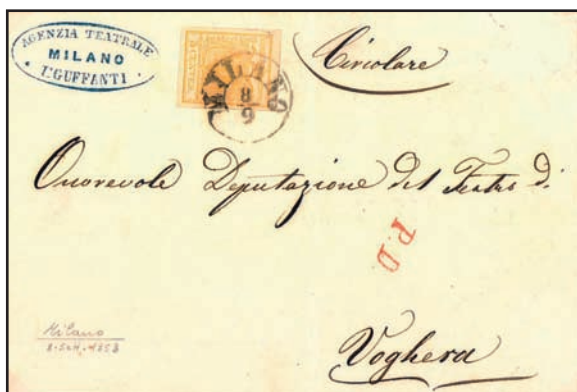 AGENZIA TEATRALE
MILANO
L. GUFFANTI
MILANO
8
9
Circolare
Onorevole Deputazione del Teatro di
P.D.
Milano
Voghera